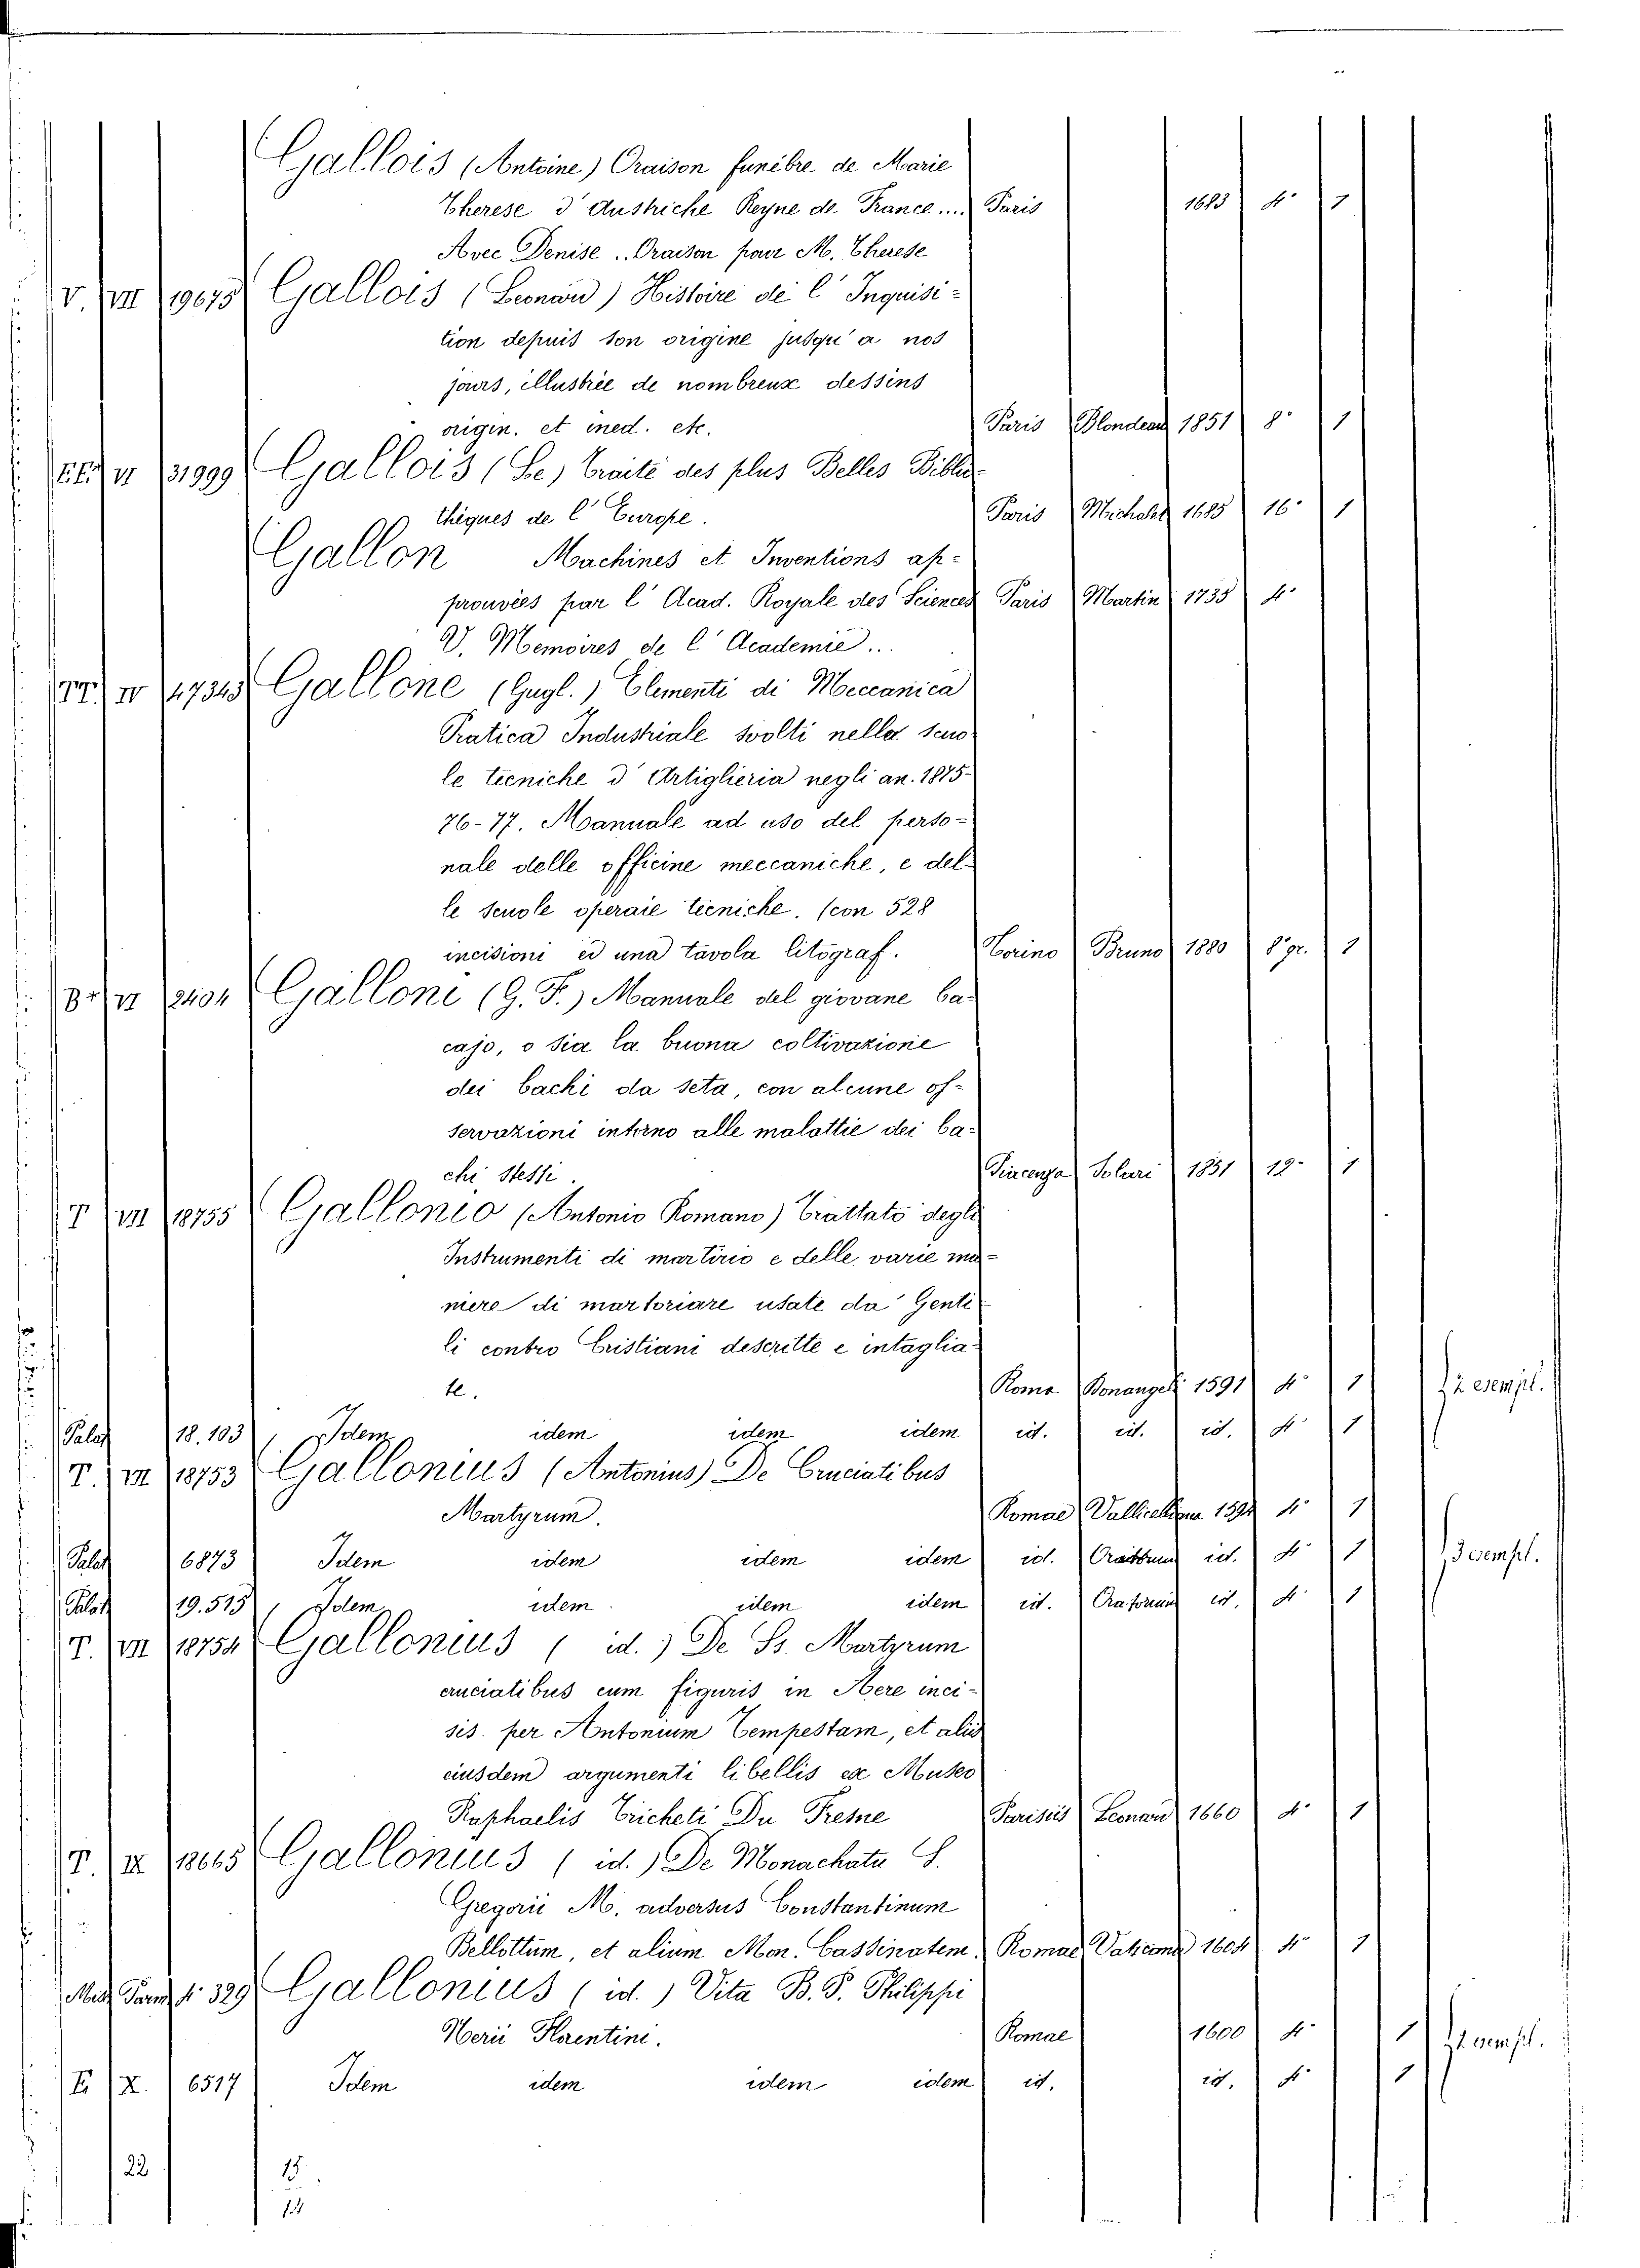 Gallois (Antoine) Oraison funèbre de Marie
Therese d'Austriche Reyne de France.... Paris 1683 4° 1
Avec Denise .. Oraison pour M. Therese
V. VII 19675 Gallois (Leonard) Histoire de l'Inquisi=
tion depuis son origine jusqu'a nos
jours, illustrée de nombreux dessins
origin. et ined. etc. Paris Blondeau 1851 8° 1
VI 31999 Gallois (Le) Traité des plus Belles Biblio-
thèques de l'Europe. Paris Michalet 1685 16° 1
Gallon Machines et Inventions ap=
prouvées par l'Acad. Royale des Sciences Paris Martin 1735 4°
V. Memoires de l'Academie...
IV 47345 Gallone (Gugl.) Elementi di Meccanica
Pratica Industriale svolti nella scuo
le tecniche d'Artiglieria negli an. 1875-
76-77. Manuale ad uso del perso=
nale delle officine meccaniche, e del=
le scuole operaie tecniche. (con 528
incisioni ed una tavola litograf. Torino Bruno 1880 8° gr. 1
VI 2404 Galloni (G. F.) Manuale del giovane ba=
cajo, o sia la buona coltivazione
dei bachi da seta, con alcune os-
servazioni intorno alle malattie dei ba=
chi stessi. Piacenza Solari 1851 12° 1
T VII 18755 Gallonio (Antonio Romano) Trattato degli
Instrumenti di martirio e delle varie ma=
niere di martoriare usate da' Genti
li contro Cristiani descritte e intaglia=
te. Roma Bonangeli 1591 4° 1 2 esempl.
Palat 18.103 Idem idem idem idem id. id. id. 4° 1
T. VII 18753 Gallonius (Antonius) De Cruciatibus
Martyrum. Romae Vallicelliana 1594 4° 1
Palat 6873 Idem idem idem idem id. Oratorium id. 4° 1 3 esempl.
Palat 19.515 Idem idem idem idem id. Oratorium id. 4° 1
T. VII 18754 Gallonius (id.) De Ss. Martyrum
cruciatibus cum figuris in Aere inci-
sis per Antonium Tempestam, et aliis
eiusdem argumenti libellis ex Museo
Raphaelis Tricheti Du Fresne Parisiis Leonard 1660 4° 1
T. IX 18665 Gallonius (id.) De Monachatu S.
Gregorii M. adversus Constantinum
Bellottum, et alium Mon. Cassinatem. Romae Vaticana 1604 4° 1
329 Gallonius (id.) Vita B. P. Philippi
Nerii Florentini. Romae 1600 4° 1 2 esempl.
X. 6517 Idem idem idem idem id. id. 4° 1
22 15
14